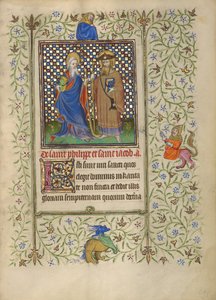 De saint philippe et saint iacob. a.
Isti sunt viri sancti quos
elegit dominus in karitate
non ficta et dedit illis
gloriam sempiternam quorum doctrina